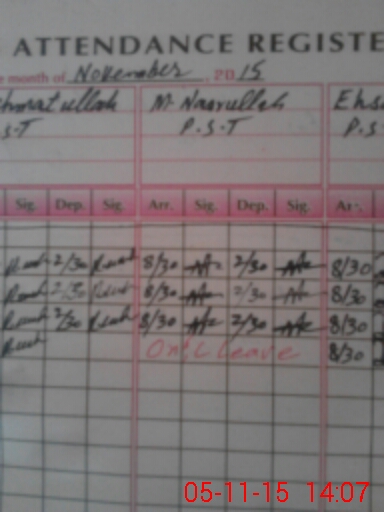 ATTENDANCE REGISTE
e month of November, 2015
hmatullah M. Nasrullah Ehs
S.T P.S.T P.S
Sig. Dep. Sig. Arr. Sig. Dep. Sig. Arr.
2/30 8/30 2/30 8/30
2/30 8/30 2/30 8/30
2/30 8/30 2/30 8/30
On C Leave 8/30
05-11-15 14:07